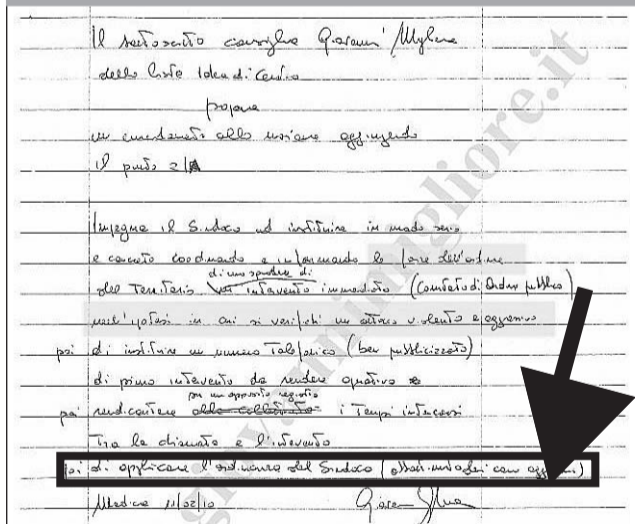 Il sottoscritto consigliere Giovanni Migliore
della lista Idea di Centro
propone
un emendamento alla mozione aggiungendo
il punto 2/A
Impegna il Sindaco ad instituire in modo serio
e concreto coordinando e informando le forze dell'ordine
di uno sportello di
del Territorio intervento immediato (Comitato di Ordine pubblico)
nell'ipotesi in cui si verifichi un attacco violento e aggressivo
poi di instituire un numero Telefonico (ben pubblicizzato)
di primo intervento da rendere operativo e
su un apposito registro
poi rendicontare i Tempi intercorsi
Tra la chiamata e l'intervento
poi di applicare l'ordinanza del Sindaco ( cani aggressivi)
Medicina 11/02/10
giovannimigliore.it